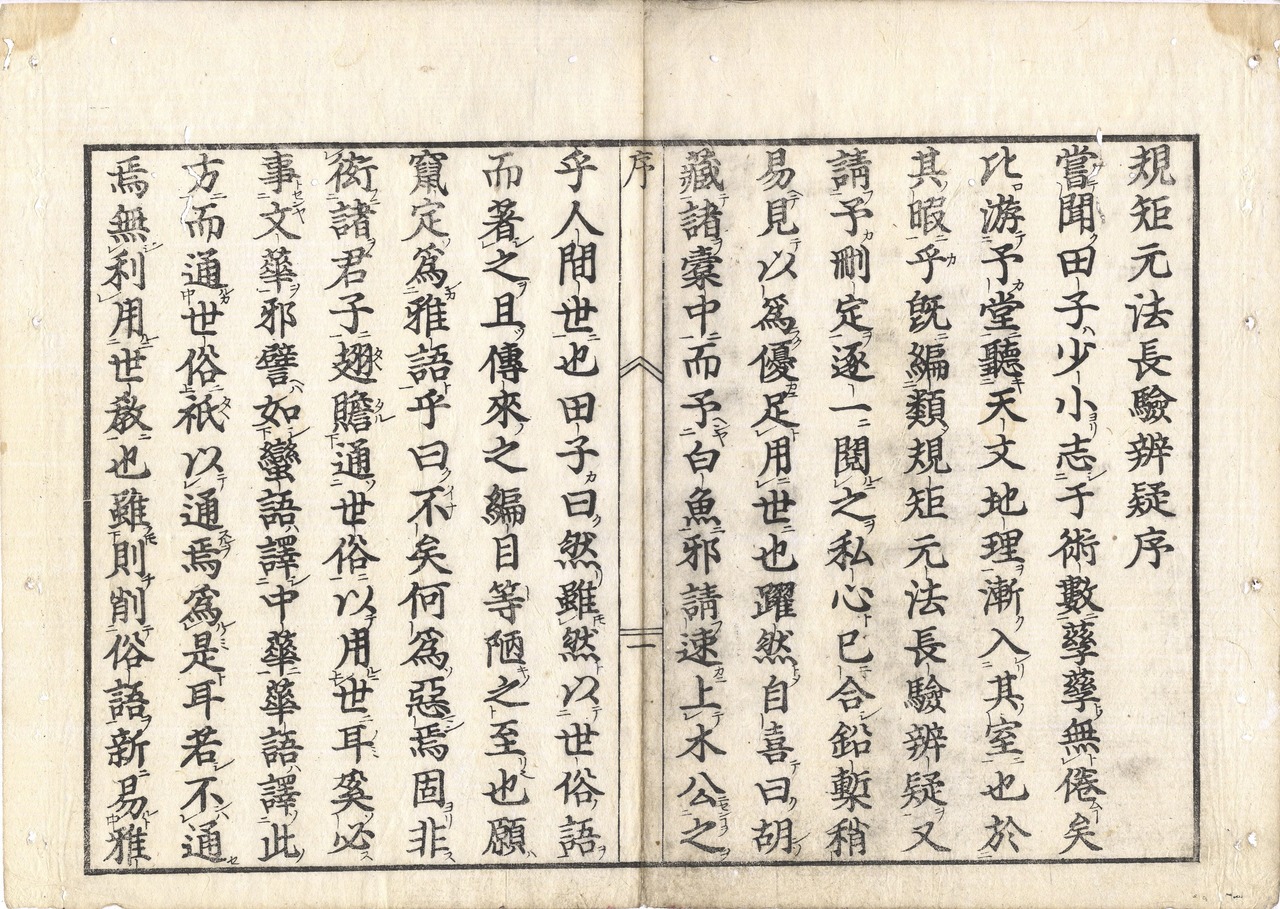 規矩元法長驗辨疑序
嘗聞田子少小志于術數孳孳無倦矣
比游予堂聽天文地理漸入其室也於
其暇乎旣編類規矩元法長驗辨疑又
請予刪定逐一閱之私心已合鉛槧稍
易見以爲優足用世也躍然自喜曰胡
藏諸橐中而予白魚邪請速上木公之
序
一
乎人間世也田子曰然雖然以世俗語
而著之且傳來之編目等陋之至也願
竄定爲雅語乎曰不矣何爲惡焉固非
衒諸君子翅贍通世俗以用世耳奚必
事文華邪譬如蠻語譯中華華語譯此
方而通世俗祇以通焉爲是耳若不通
焉無利用世教也雖則削俗語新易雅